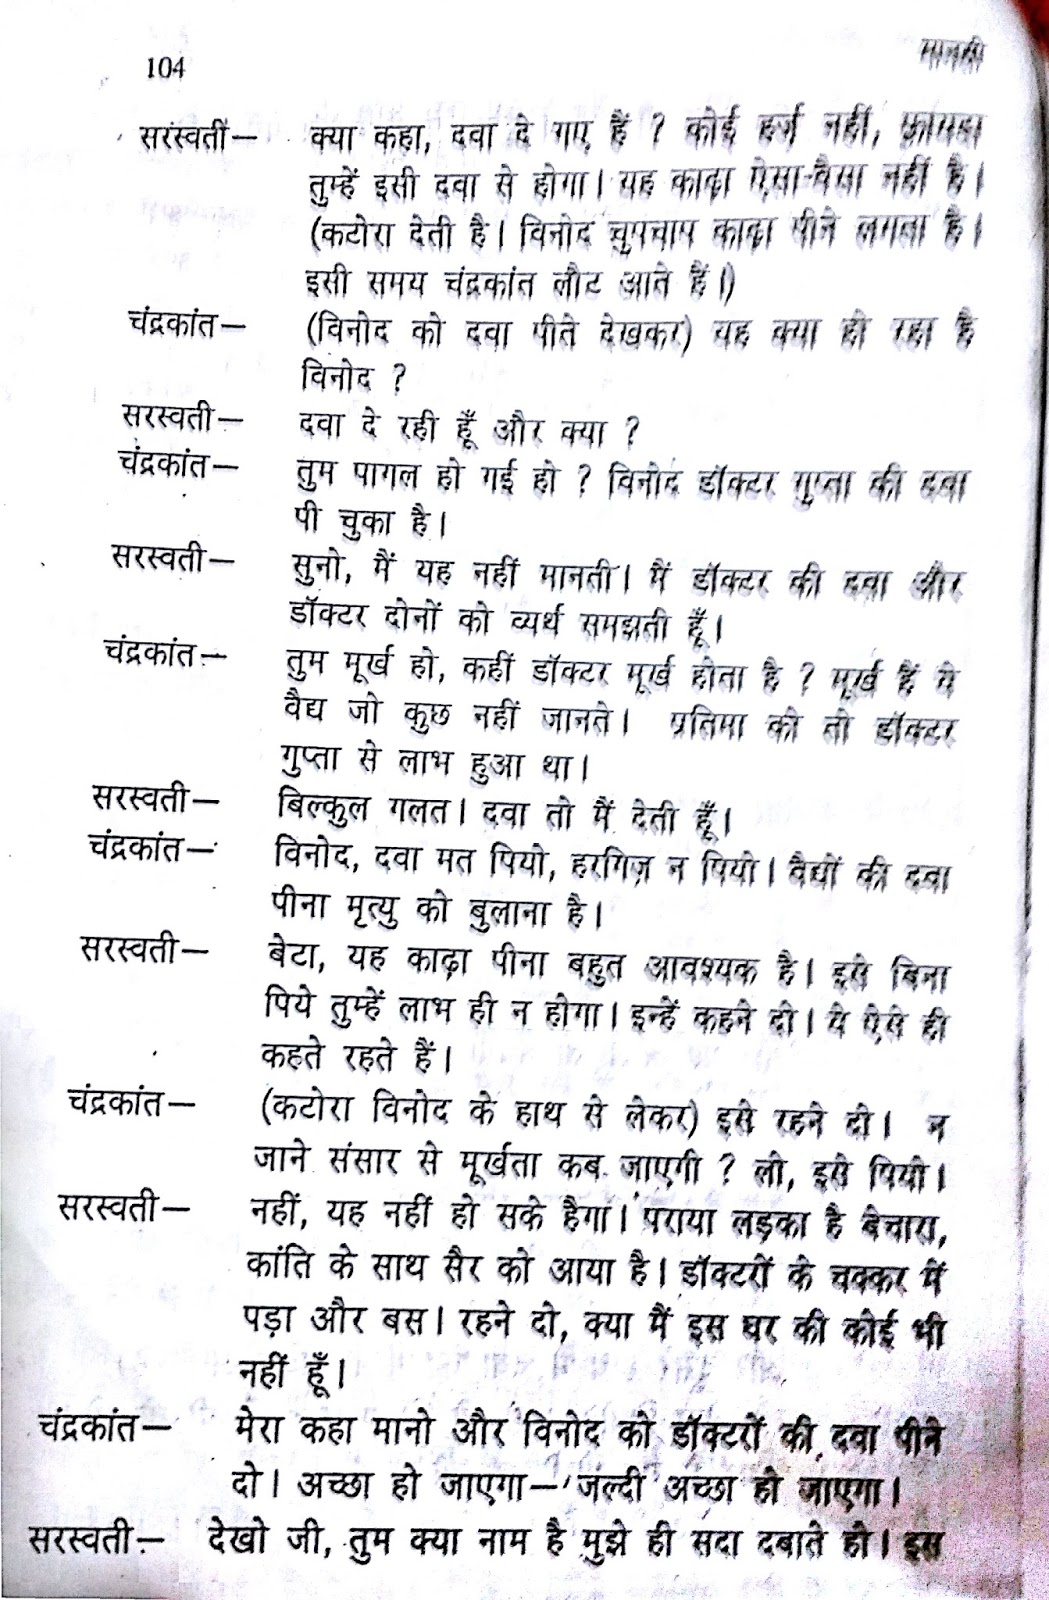 104 मानसी
सरस्वती— क्या कहा, दवा दे गए हैं ? कोई हर्ज नहीं, फ़ायदा
तुम्हें इसी दवा से होगा। यह काढ़ा ऐसा-वैसा नहीं है।
(कटोरा देती है। विनोद चुपचाप काढ़ा पीने लगता है।
इसी समय चंद्रकांत लौट आते हैं।)
चंद्रकांत— (विनोद को दवा पीते देखकर) यह क्या हो रहा है
विनोद ?
सरस्वती— दवा दे रही हूँ और क्या ?
चंद्रकांत— तुम पागल हो गई हो ? विनोद डॉक्टर गुप्ता की दवा
पी चुका है।
सरस्वती— सुनो, मैं यह नहीं मानती। मैं डॉक्टर की दवा और
डॉक्टर दोनों को व्यर्थ समझती हूँ।
चंद्रकांत— तुम मूर्ख हो, कहीं डॉक्टर मूर्ख होता है ? मूर्ख हैं ये
वैद्य जो कुछ नहीं जानते। प्रतिमा को तो डॉक्टर
गुप्ता से लाभ हुआ था।
सरस्वती— बिल्कुल गलत। दवा तो मैं देती हूँ।
चंद्रकांत— विनोद, दवा मत पियो, हरगिज़ न पियो। वैद्यों की दवा
पीना मृत्यु को बुलाना है।
सरस्वती— बेटा, यह काढ़ा पीना बहुत आवश्यक है। इसे बिना
पिये तुम्हें लाभ ही न होगा। इन्हें कहने दो। ये ऐसे ही
कहते रहते हैं।
चंद्रकांत— (कटोरा विनोद के हाथ से लेकर) इसे रहने दो। न
जाने संसार से मूर्खता कब जाएगी ? लो, इसे पियो।
सरस्वती— नहीं, यह नहीं हो सके हैगा। पराया लड़का है बेचारा,
कांति के साथ सैर को आया है। डॉक्टरों के चक्कर में
पड़ा और बस। रहने दो, क्या मैं इस घर की कोई भी
नहीं हूँ।
चंद्रकांत— मेरा कहा मानो और विनोद को डॉक्टरों की दवा पीने
दो। अच्छा हो जाएगा— जल्दी अच्छा हो जाएगा।
सरस्वती— देखो जी, तुम क्या नाम है मुझे ही सदा दबाते हो। इस